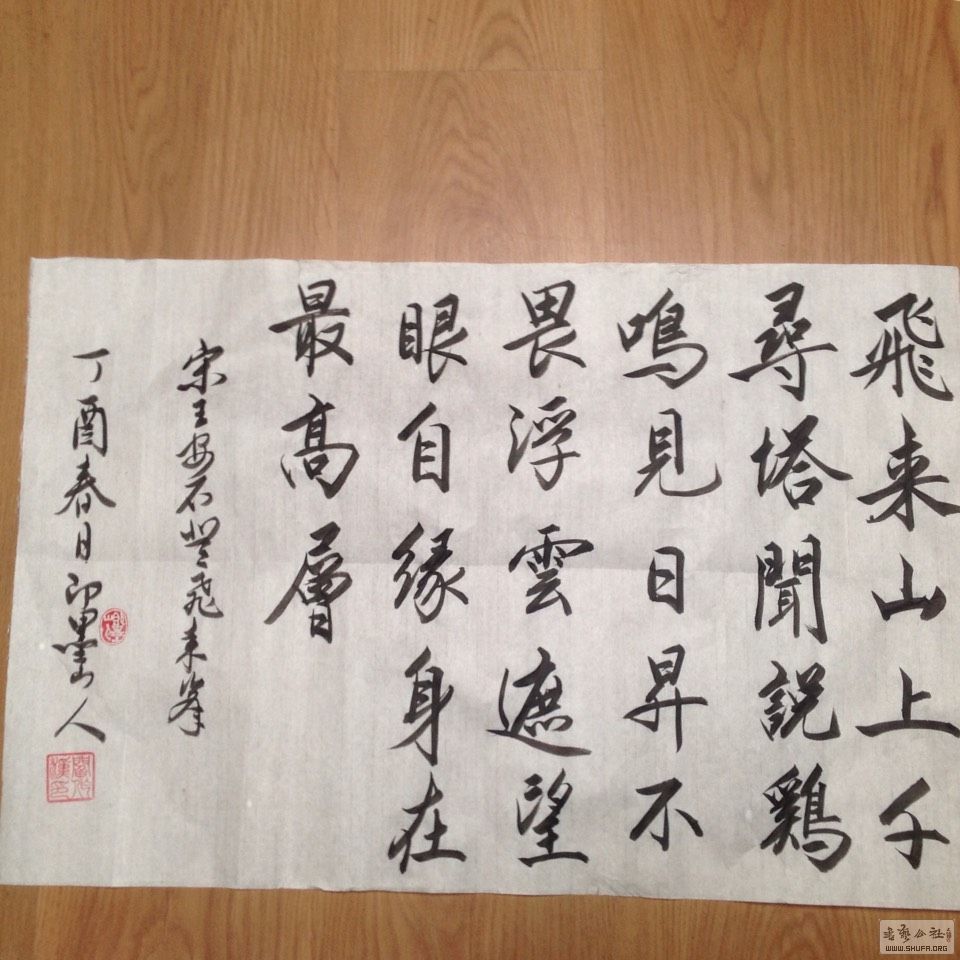 飛来山上千
尋塔聞説鷄
鳴見日昇不
畏浮雲遮望
眼自緣身在
最高層
宋王安石登飛来峯
丁酉春日卬墨山人
WWW.SHUFA.ORG